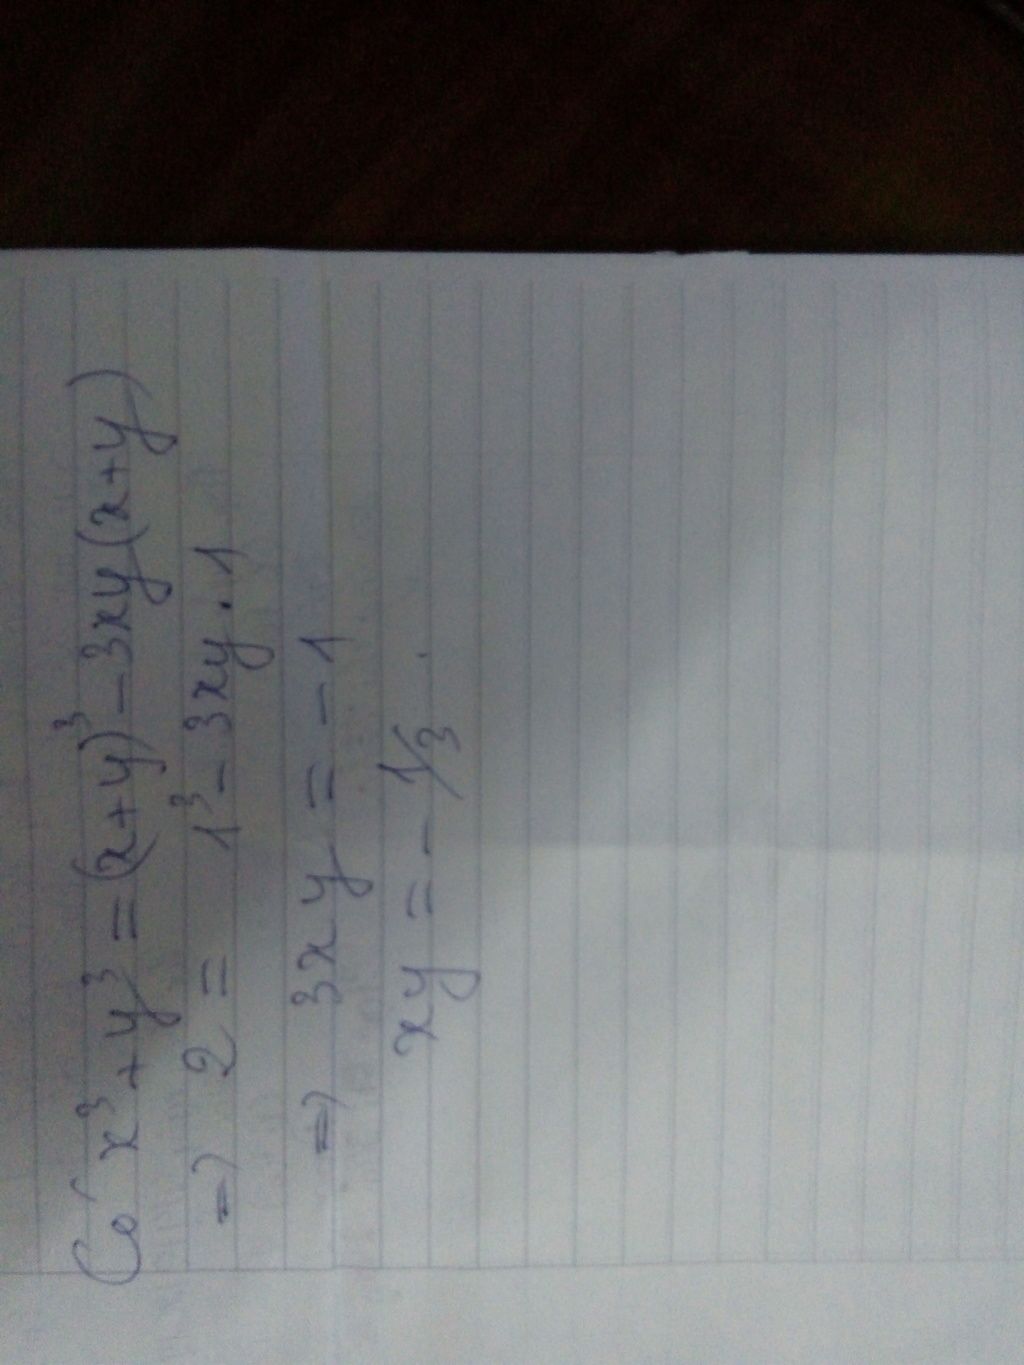 Có x³ + y³ = (x + y)³ - 3xy(x + y)
⇒ 2 = 1³ - 3xy . 1
⇒ 3xy = - 1
xy = - 1/3 .